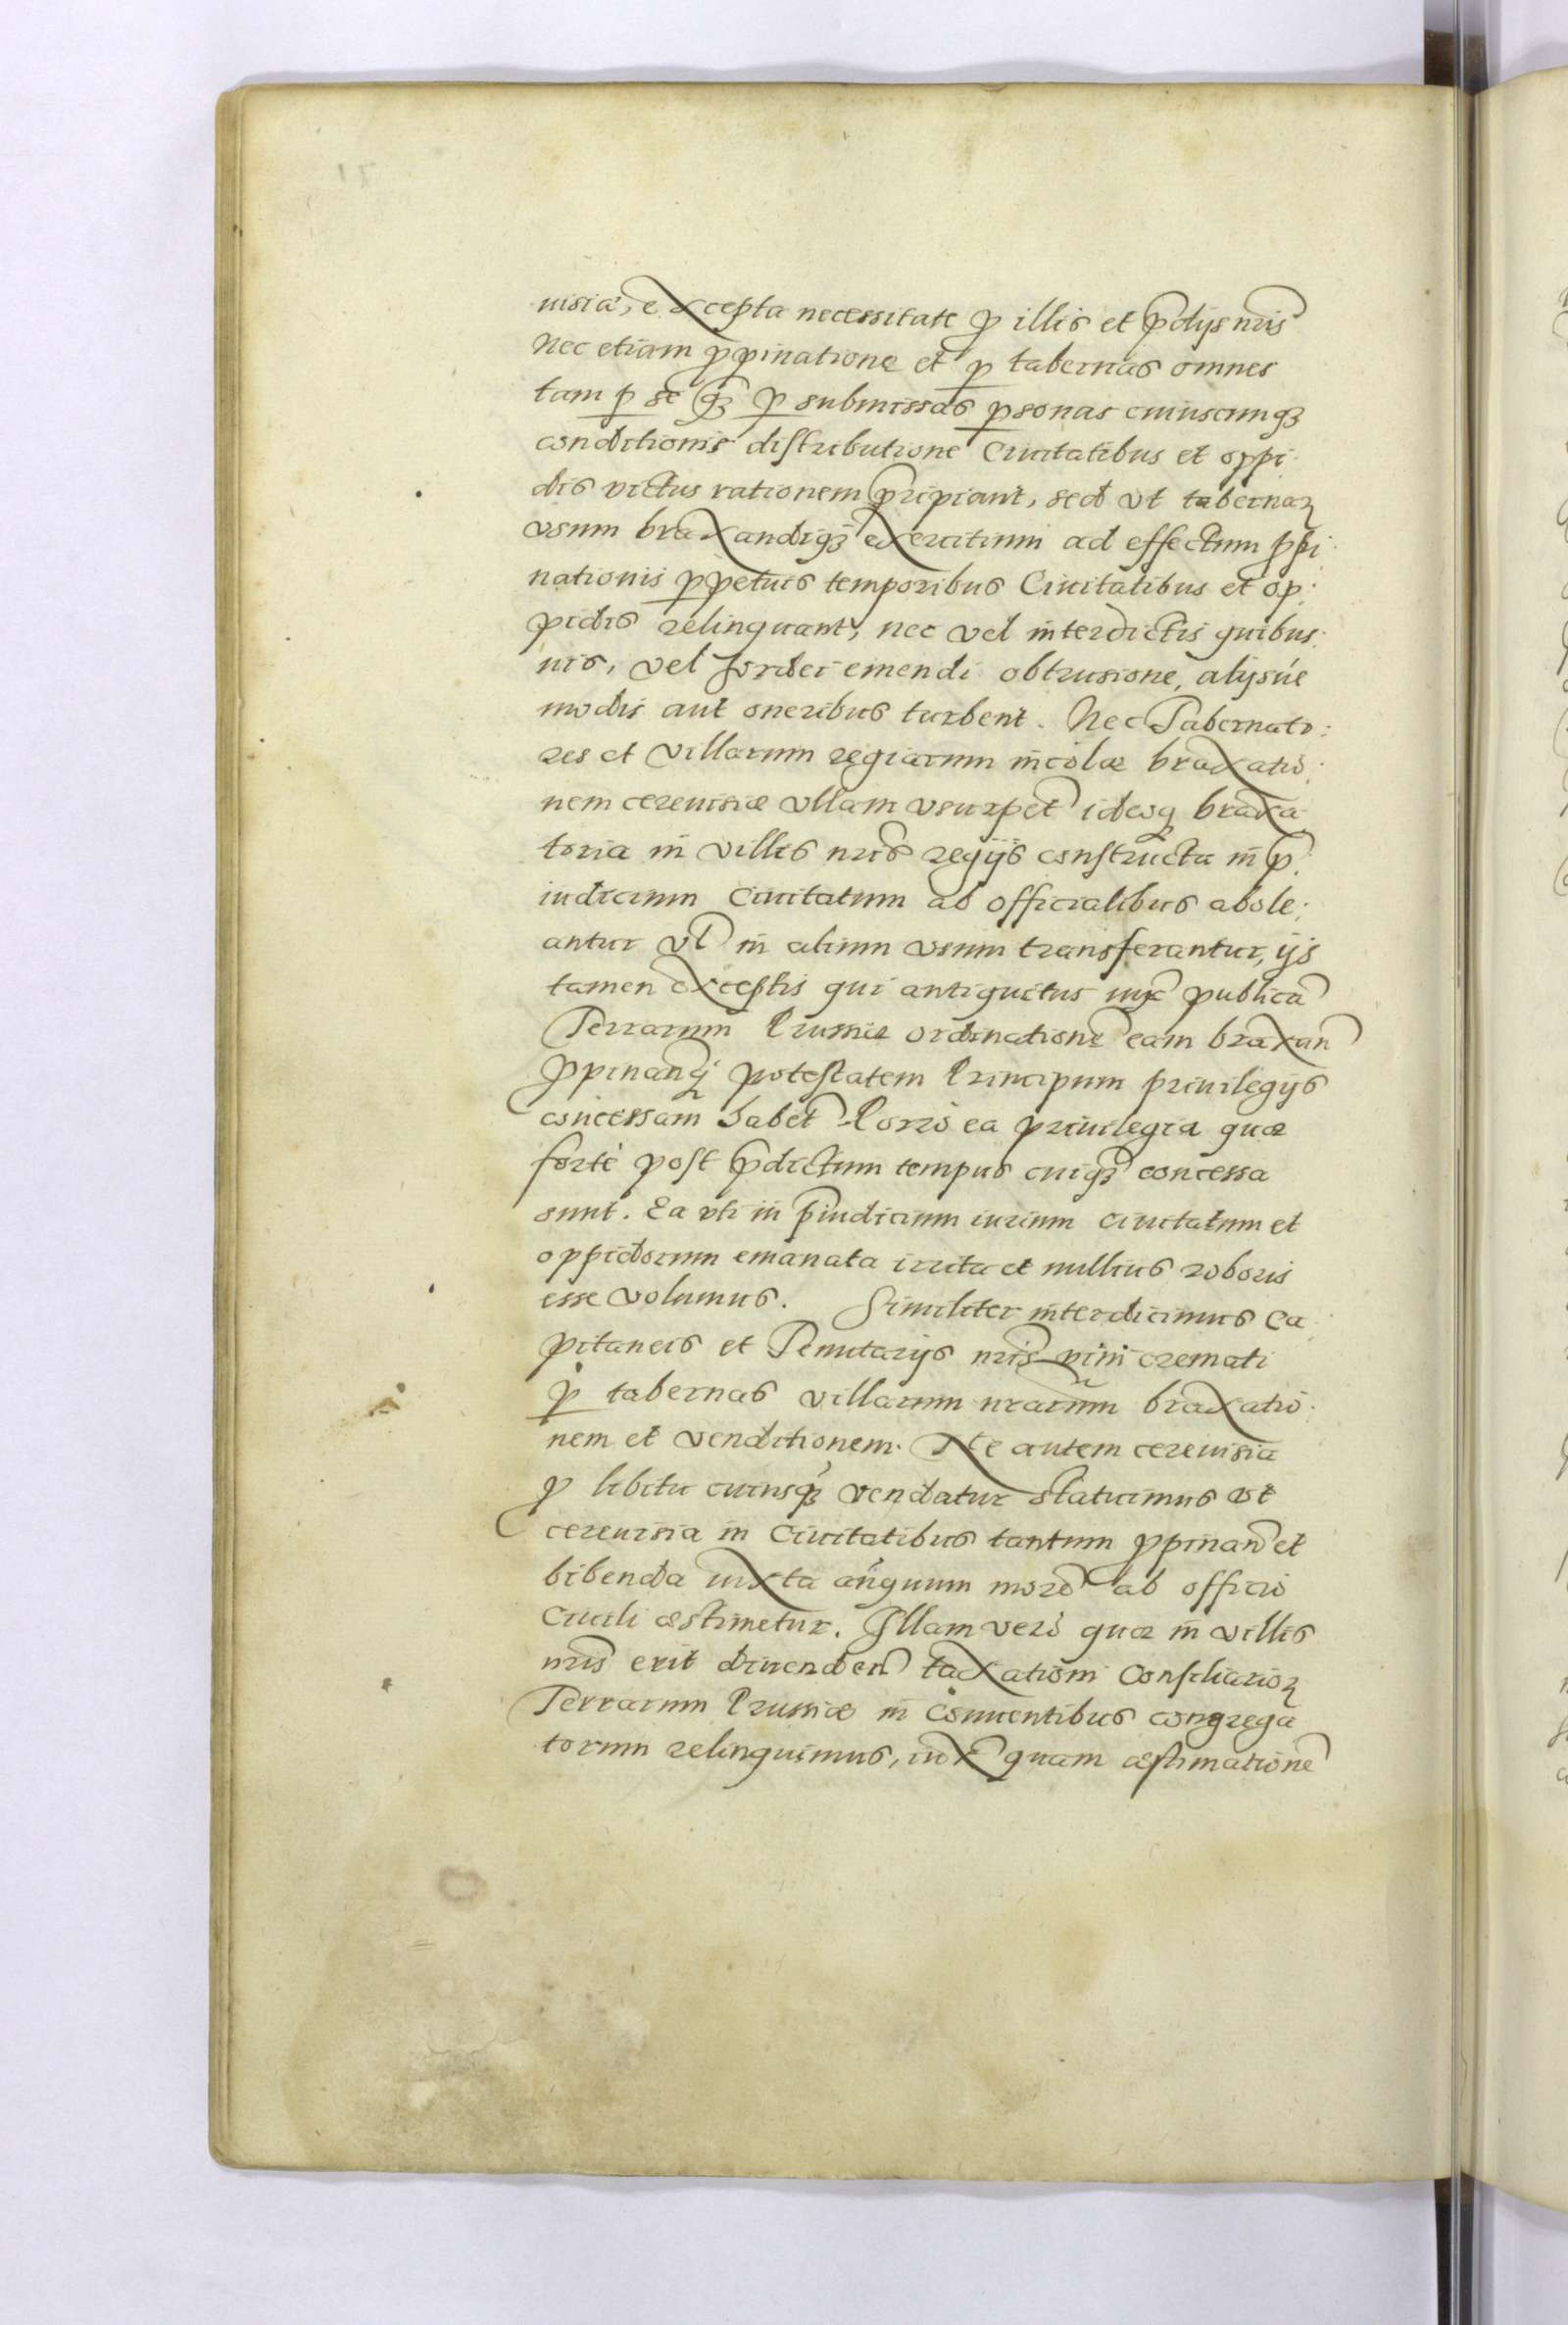 uisiæ, excepta necessitate ꝓ illis et p̄dijs nr̄is
Nec etiam ꝓpinatione et ꝑ tabernas omnes
tam ꝑ se qȝ ꝑ submissas ꝑsonas cuiuscunqȝ
conditionis distributione Ciuitatibus et oppi:
dis victus rationem p̄ripiant, sed vt tabernaꝝ
vsum braxandiqȝ exercitium ad effectum ꝓpi:
nationis ꝑpetuis temporibus Ciuitatibus et op:
pidis relinquant, nec vel interdictis quibus:
uis, vel hordei emendi obtrusione, alijsúe
modis aut oneribus turbent. Nec Tabernato:
res et villarum regiarum incolæ braxatio:
nem cereuisiæ vllam vsurpet̄ ideoqꝫ braxa
toria in villis nr̄is regijs constructa in p̄:
iudicium Ciuitatum ab officialibus abole:
antur vl̄ in alium vsum transferantur, ijs
tamen exceptis qui antiquitus iux̄ publicā
Terrarum Prussiæ ordinationē eam braxan̄
ꝓpinanqꝫ potestatem Principum priuilegijs
concessam habet̄ Porrò ea priuilegia quæ
fortè post p̄dictum tempus cuiqȝ concessa
sunt. Ea vti in p̄iudicium iurium ciuitatum et
oppidorum emanata irrita et nullius roboris
esse volumus. Similiter interdicimus Ca:
pitaneis et Tenutarijs nr̄is vini cremati
ꝑ tabernas villarum nrārum braxatio:
nem et venditionem. Ne autem cereuisia
ꝓ libitu cuiusqȝ vendatur statuimus vt
cereuisia in Ciuitatibus tantum ꝓpinan̄ et
bibenda iuxta an̄quum morē ab officio
Ciuili æstimetur. Illam verò quæ in villis
nr̄is erit diuenden̄ taxationi Consiliarioꝝ
Terrarum Prussiæ in Conuentibus congrega
torum relinquimus, iux̄ quam æstimationē